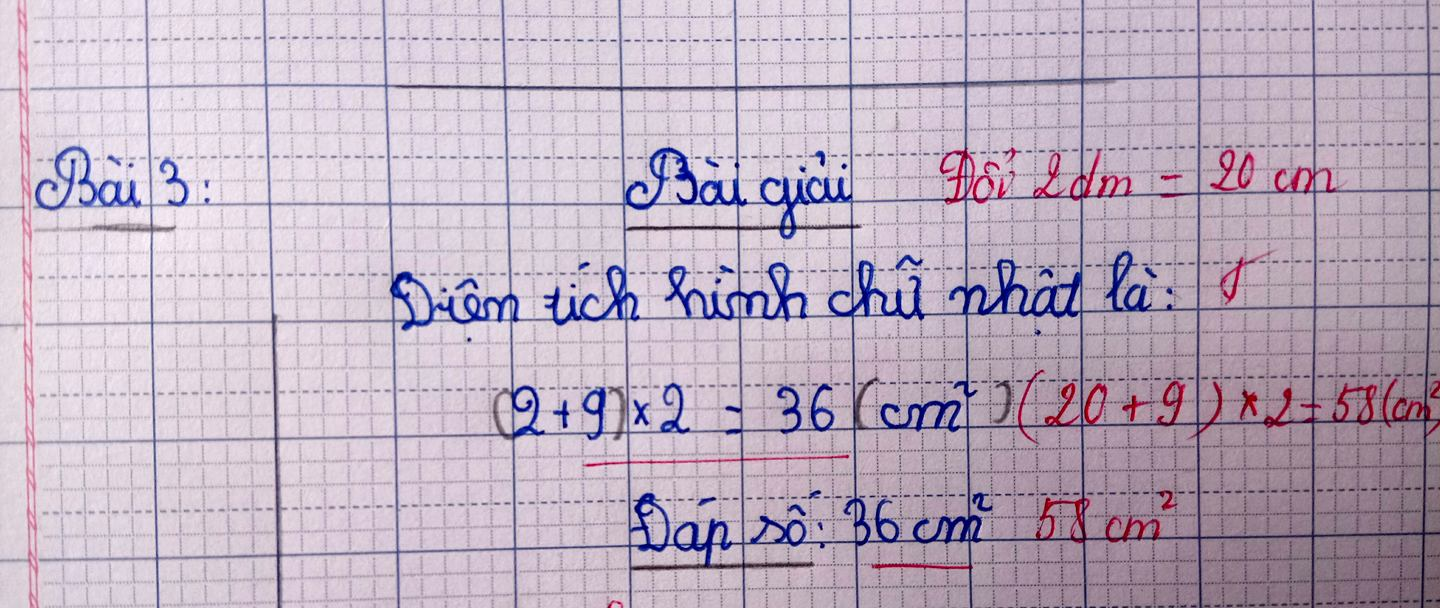 Bài 3: Bài giải Đổi 2dm = 20 cm
Diện tích hình chữ nhật là:
(2+9)×2 = 36 (cm²) (20+9)×2=58(cm²
Đáp số: 36 cm² 58 cm²